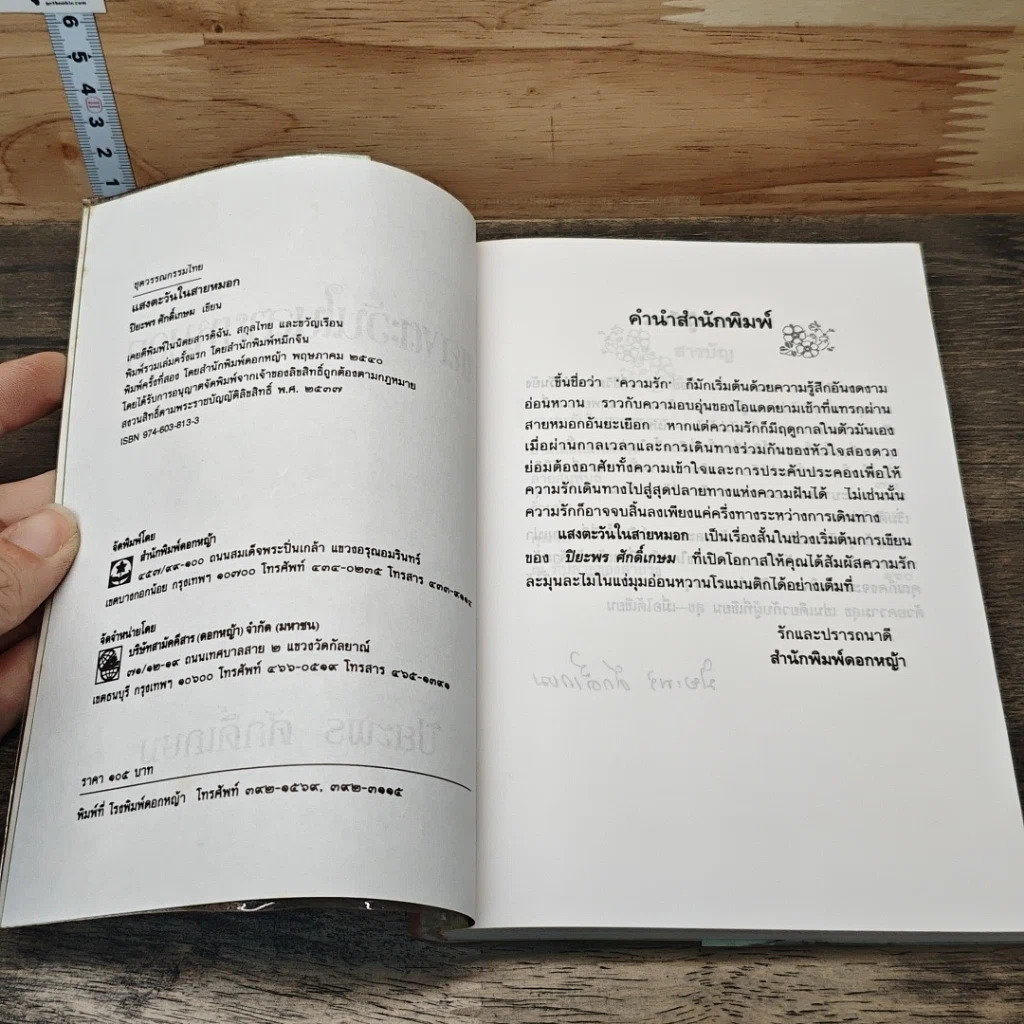 ชุดวรรณกรรมไทย
แสงตะวันในสายหมอก
ปิยะพร ศักดิ์เกษม เขียน
เคยตีพิมพ์ในนิตยสารดิฉัน, สกุลไทย และขวัญเรือน
พิมพ์รวมเล่มครั้งแรก โดยสำนักพิมพ์หมึกจีน
พิมพ์ครั้งที่สอง โดยสำนักพิมพ์ดอกหญ้า พฤษภาคม ๒๕๔๐
โดยได้รับการอนุญาตจัดพิมพ์จากเจ้าของลิขสิทธิ์ถูกต้องตามกฎหมาย
สงวนสิทธิ์ตามพระราชบัญญัติลิขสิทธิ์ พ.ศ. ๒๕๓๗
ISBN 974-603-813-3
จัดพิมพ์โดย
สำนักพิมพ์ดอกหญ้า
๔๕๗/๙๙-๑๐๐ ถนนสมเด็จพระปิ่นเกล้า แขวงอรุณอมรินทร์
เขตบางกอกน้อย กรุงเทพฯ ๑๐๗๐๐ โทรศัพท์ ๔๓๔-๐๒๓๕ โทรสาร
จัดจำหน่ายโดย
บริษัทสามัคคีสาร (ดอกหญ้า) จำกัด (มหาชน)
๓๑/๑๒-๑๙ ถนนเทศบาลสาย ๒ แขวงวัดกัลยาณ์
เขตธนบุรี กรุงเทพฯ ๑๐๖๐๐ โทรศัพท์ ๔๖๖-๐๕๑๙ โทรสาร ๔๖๕-๑๓๙๑
ราคา ๑๐๕ บาท
พิมพ์ที่ โรงพิมพ์ดอกหญ้า โทรศัพท์ ๓๙๒-๑๕๖๙, ๓๙๒-๓๑๑๕
คำนำสำนักพิมพ์
ขึ้นชื่อว่า 'ความรัก' ก็มักเริ่มต้นด้วยความรู้สึกอันงดงาม
อ่อนหวาน ราวกับความอบอุ่นของไอแดดยามเช้าที่แทรกผ่าน
สายหมอกอันยะเยือก หากแต่ความรักก็มีฤดูกาลในตัวมันเอง
เมื่อผ่านกาลเวลาและการเดินทางร่วมกันของหัวใจสองดวง
ย่อมต้องอาศัยทั้งความเข้าใจและการประคับประคองเพื่อให้
ความรักเดินทางไปสู่สุดปลายทางแห่งความฝันได้ ไม่เช่นนั้น
ความรักก็อาจจบสิ้นลงเพียงแค่ครึ่งทางระหว่างการเดินทาง
แสงตะวันในสายหมอก เป็นเรื่องสั้นในช่วงเริ่มต้นการเขียน
ของ ปิยะพร ศักดิ์เกษม ที่เปิดโอกาสให้คุณได้สัมผัสความรัก
ละมุนละไมในแง่มุมอ่อนหวานโรแมนติกได้อย่างเต็มที่
รักและปรารถนาดี
สำนักพิมพ์ดอกหญ้า
6
5
4
3
2
1